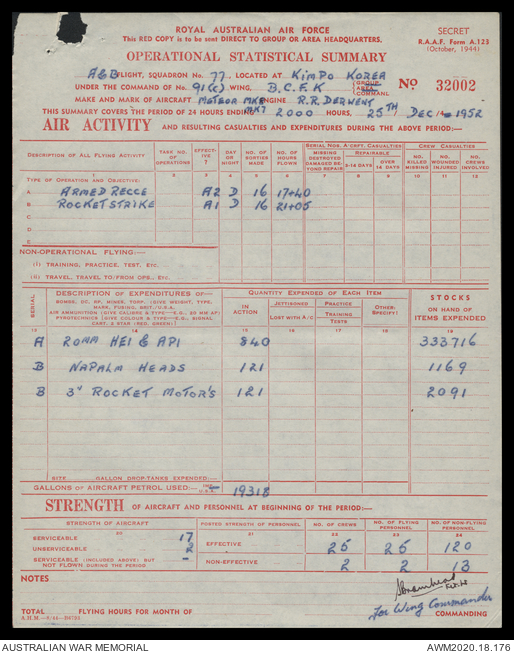 ROYAL AUSTRALIAN AIR FORCE
This RED COPY is to be sent DIRECT TO GROUP OR AREA HEADQUARTERS.
SECRET
R.A.A.F. Form A.123
(October, 1944)
OPERATIONAL STATISTICAL SUMMARY
A&B FLIGHT, SQUADRON No. 77. LOCATED AT KIMPO KOREA
UNDER THE COMMAND OF No. 91(C) WING, B.C.F.K GROUP AREA COMMAND.
No 32002
MAKE AND MARK OF AIRCRAFT METEOR MK8 MK7 ENGINE R.R. DERWENT
THIS SUMMARY COVERS THE PERIOD OF 24 HOURS ENDING 2000 HOURS, 25TH DEC 1952
AIR ACTIVITY AND RESULTING CASUALTIES AND EXPENDITURES DURING THE ABOVE PERIOD:—
DESCRIPTION OF ALL FLYING ACTIVITY
TASK NO. OF OPERATIONS
EFFECT-IVE
DAY OR NIGHT
NO. OF SORTIES MADE
NO. OF HOURS FLOWN
SERIAL NOS. A'CRFT. CASUALTIES
MISSING DESTROYED DAMAGED BE-YOND REPAIR
REPAIRABLE
2-14 DAYS
OVER 14 DAYS
CREW CASUALTIES
NO. KILLED MISSING
NO. WOUNDED INJURED
NO. CREWS INVOLVED
1 2 3 4 5 6 7 8 9 10 11 12
TYPE OF OPERATION AND OBJECTIVE:
A ARMED RECCE A2 D 16 17+40
B ROCKET STRIKE A1 D 16 21+05
C
D
E
NON-OPERATIONAL FLYING:—
(I) TRAINING, PRACTICE, TEST, ETC.
(II) TRAVEL, TRAVEL TO/FROM OPS., ETC.
SERIAL
DESCRIPTION OF EXPENDITURES OF—
BOMBS, DC, RP, MINES, TORP. (GIVE WEIGHT, TYPE, MARK, FUSING, BRIT./U.S.A.
AIR AMMUNITION (GIVE CALIBRE & TYPE—E.G., 20 MM AP)
PYROTECHNICS (GIVE COLOUR & TYPE—E.G., SIGNAL CART. 2 STAR (RED, GREEN).)
QUANTITY EXPENDED OF EACH ITEM
IN ACTION
JETTISONED
LOST WITH A/C
PRACTICE
TRAINING
TESTS
OTHER: SPECIFY:
STOCKS
ON HAND OF ITEMS EXPENDED
13 14 15 16 17 18 19
A 20MM HEI & API 840 333716
B NAPALM HEADS 121 1169
B 3" ROCKET MOTOR'S 121 2091
SIZE GALLON DROP-TANKS EXPENDED:—
GALLONS OF AIRCRAFT PETROL USED:— IMP. U.S.A. 19318
STRENGTH OF AIRCRAFT AND PERSONNEL AT BEGINNING OF THE PERIOD:—
STRENGTH OF AIRCRAFT
POSTED STRENGTH OF PERSONNEL
NO. OF CREWS
NO. OF FLYING PERSONNEL
NO. OF NON-FLYING PERSONNEL
20 21 22 23 24
SERVICEABLE 17
UNSERVICEABLE 2
SERVICEABLE (INCLUDED ABOVE) BUT NOT FLOWN DURING THE PERIOD –
EFFECTIVE 25 25 120
NON-EFFECTIVE 2 2 13
NOTES
for Wing Commander
COMMANDING
TOTAL FLYING HOURS FOR MONTH OF
18.31.
AUSTRALIAN WAR MEMORIAL
AWM2020.18.176